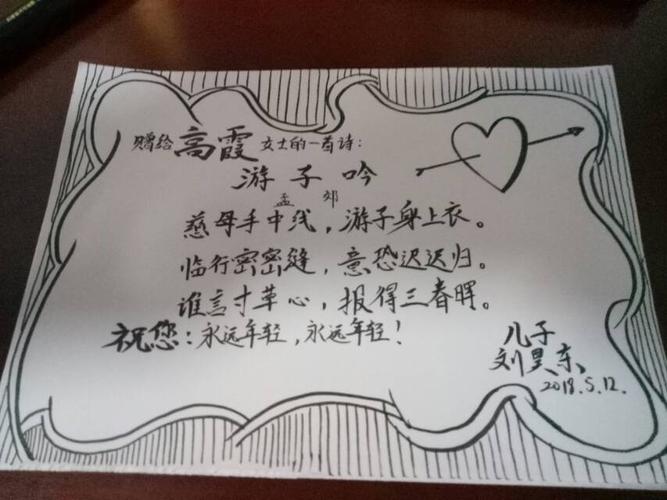 赠给高霞女士的一首诗：
游子吟
孟郊
慈母手中线，游子身上衣。
临行密密缝，意恐迟迟归。
谁言寸草心，报得三春晖。
祝您：永远年轻，永远年轻！
儿子
刘昊东
2018.5.12.